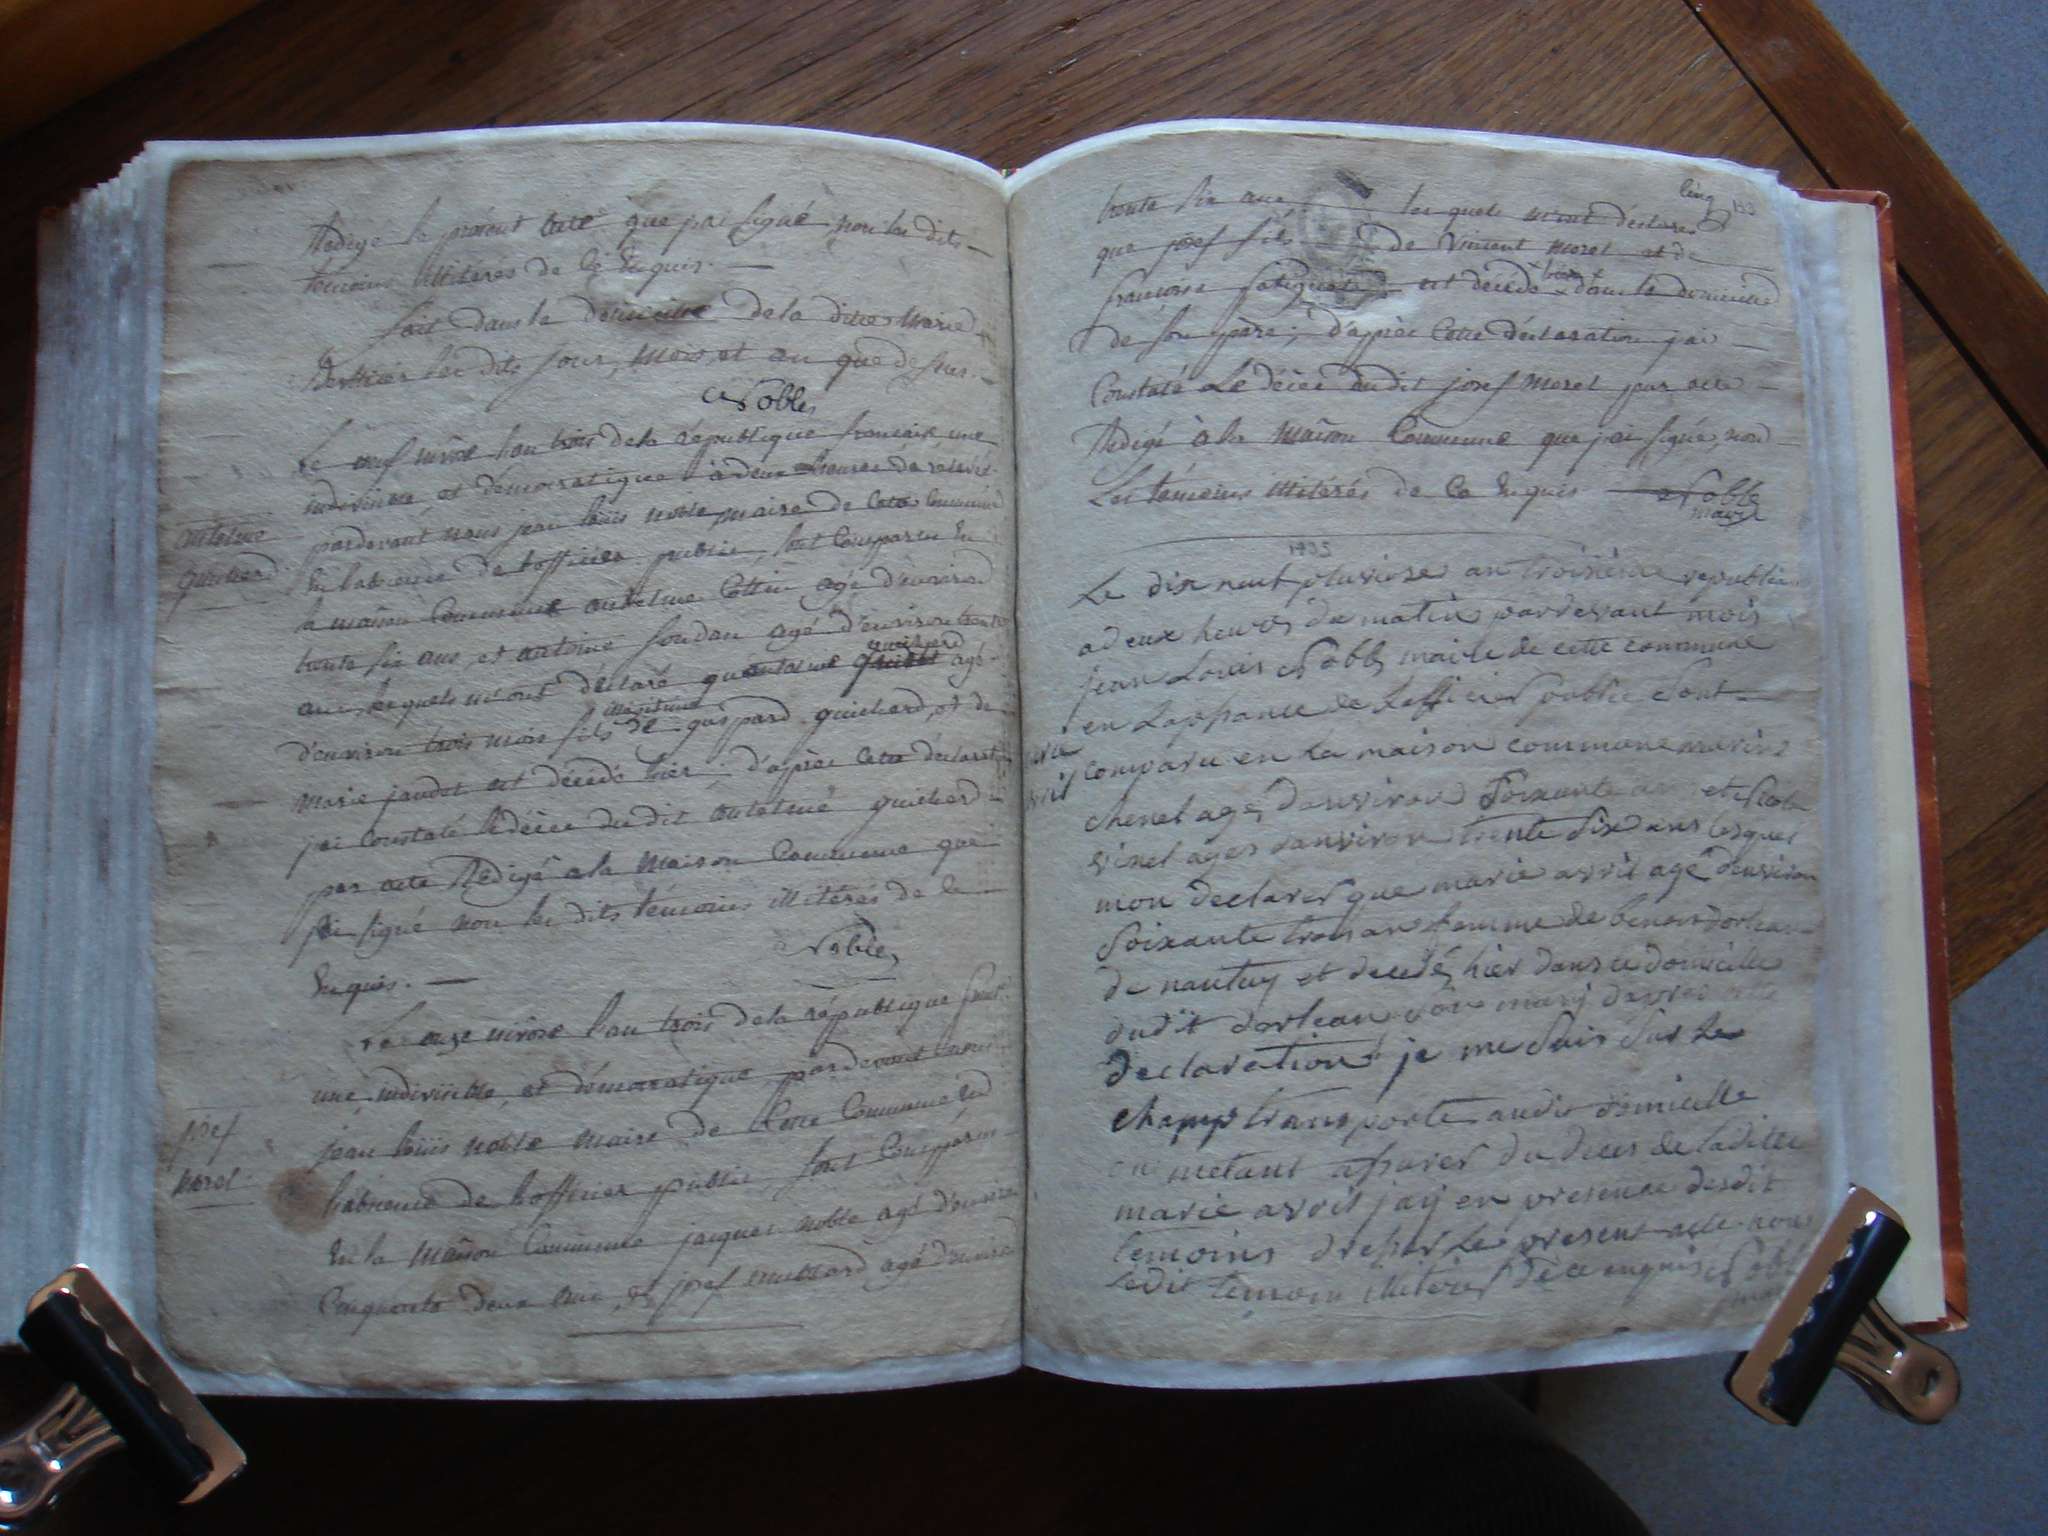 Redigé le présent acte que jai signé, non les dits
témoins illitérés de ce Enquis.
fait dans le domicille de la dite Marie
les dits jour, mois, et an que dessus.
Noble
Le neuf nivôse l'an trois de la république francaise une
indivisible et démocratique à deux heures de relevée
pardevant nous jean louis noble maire de cette Commune
En labsence de lofficier public, sont Comparu En
la maison Commune antelme Cottin agé d'environ
trente six ans, et antoine foudan agé d'environ trente
ans, lesquels m'ont déclaré qu'antelme guichard agé
d'environ trois mois fils de gaspard guichard, et de
légitime
marie jandet est décedé hier; d'après cette déclaration
jai Constaté le décès dudit antelme guichard
par acte Redigé a la Maison Commune que
jai signé non les dits témoins illitérés de ce
Enquis.
Noble
Le onze nivose l'an trois de la république franc.
une, indivisible, et démocratique pardevant nous
jean louis noble maire de Cette Commune En
labsence de lofficier public, sont Comparus
En la maison Commune jacques noble agé d'environ
Cinquante deux ans, et josef agé d'environ
antelme
guichard
josef
morel
cinq
123
trente six ans lesquels m'ont déclarés
que josef fils de Vincent morel et de
francoise est décedé hier dans le domicille
de son père; d'après Cette déclaration jai
Constaté Le décès dudit josef morel par acte
Redigé à la maison Commune que jai signé, non
Les témoins illitérés de Ce Enquis Noble
maire
1795
Le dix neut pluviose an troisieme republicain
a deux heures du matin pardevant mois
jean Louis Noble maire de cette commune
en Lapsance de Lofficier public sont
comparu en La maison commune marin
chenet agé danviron soixante an et
vinet ages danviron trente six ans lesquel
mon declares que marie avril agé danviron
soixante trois an femme de benoit dorlean
de nantuy et decedé hier dans le domicille
dudit dorlean son mary dapres cette
declaration je me suis sur Le
champ transporte audit domicille
en metant assurer du deces de laditte
marie avril jay en presence desdit
temoins dresser Le present acte nous
Ledit temoin illiteres de ce enquis Noble